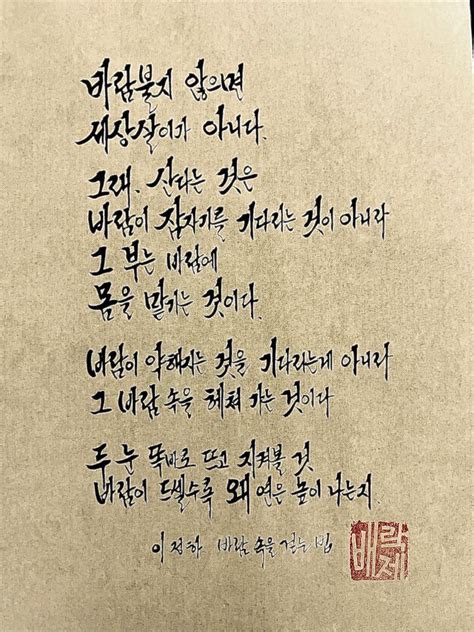 바람불지 않으면
세상살이가 아니다.
그래, 산다는 것은
바람이 잠자기를 기다리는 것이 아니라
그 부는 바람에
몸을 맡기는 것이다.
바람이 약해지는 것을 기다리는게 아니라
그 바람 속을 헤쳐 가는 것이다
두 눈 똑바로 뜨고 지켜볼 것
바람이 드셀수록 왜 연은 높이 나는지.
이정하 바람 속을 걷는 법